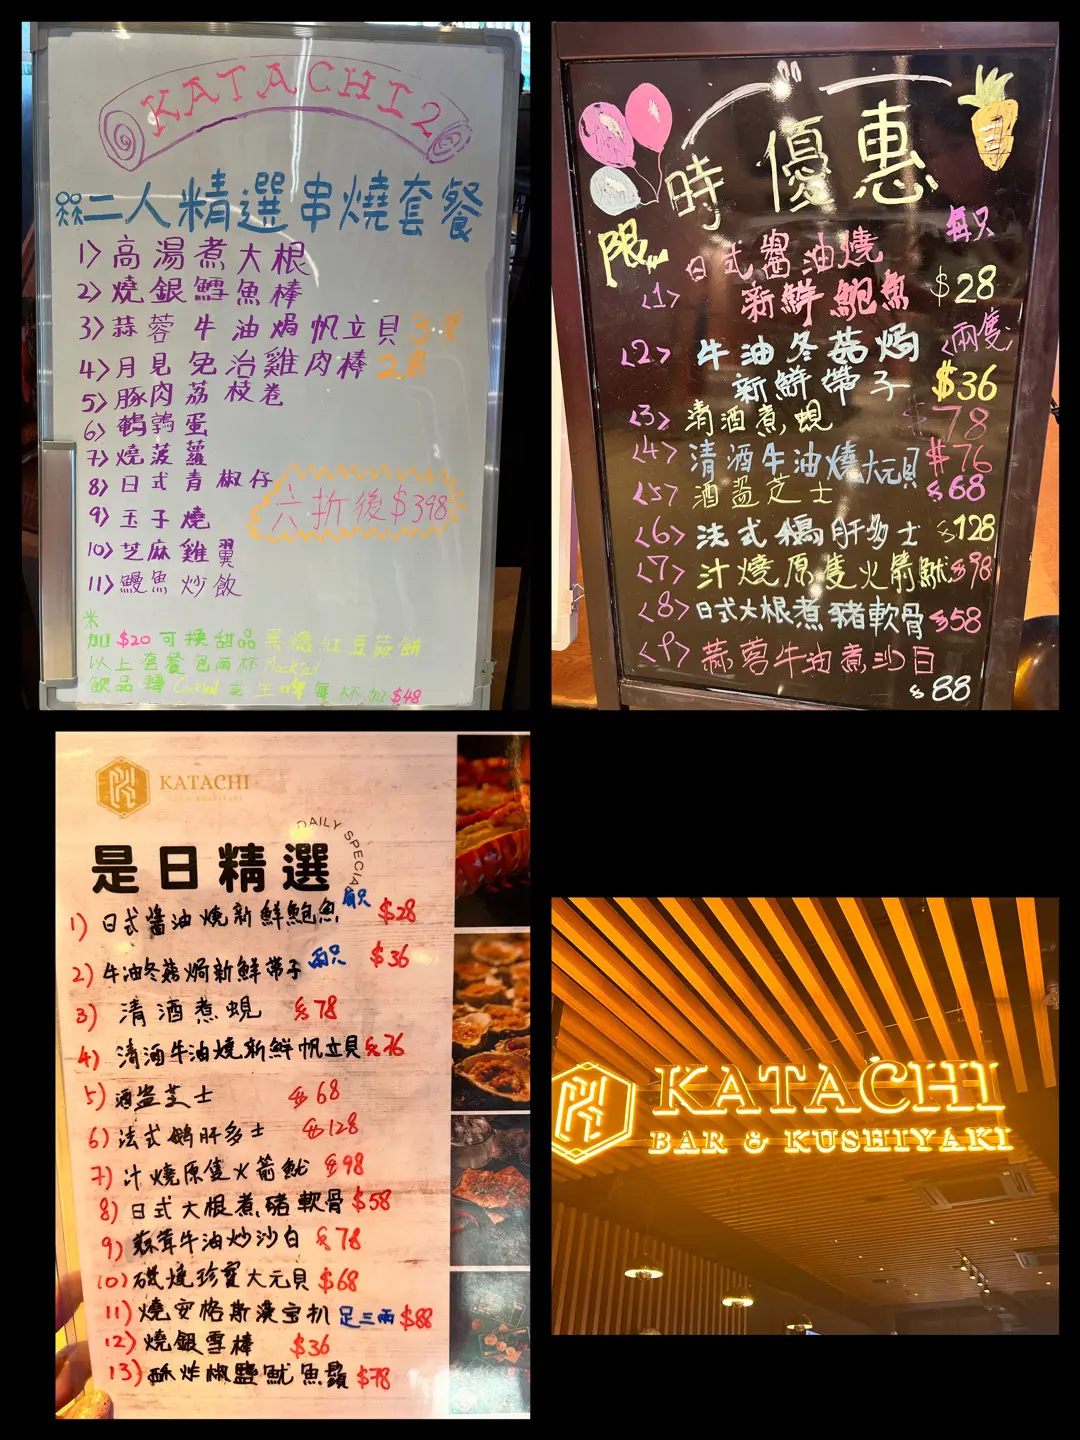 KATACHI2
二人精選串燒套餐
1) 高湯煮大根
2) 燒銀鱈魚棒
3) 蒜蓉牛油焗帆立貝
4) 月見免治雞肉棒
5) 豚肉荔枝卷
6) 鵪鶉蛋
7) 燒菠蘿
8) 日式青椒仔
9) 玉子燒
10) 芝麻雞翼
11) 鰻魚炒飯
六折後$398
米
加$20可換甜品黑糖紅豆蕨餅
以上套餐包兩杯Mocktail
飲品轉Cocktail 生啤每杯加$48
限時優惠
每只
<1> 日式醬油燒
新鮮鮑魚 $28
<2> 牛油冬菇焗 <兩隻>
新鮮帶子 $36
<3> 清酒煮蜆 $78
<4> 清酒牛油燒大元貝 $76
<5> 酒盜芝士 $68
<6> 法式鵝肝多士 $128
<7> 汁燒原隻火箭魷 $98
<8> 日式大根煮豬軟骨 $58
<9> 蒜蓉牛油煮沙白
$88
KATACHI
DAILY SPECIAL
是日精選
1) 日式醬油燒新鮮鮑魚 每只 $28
2) 牛油冬菇焗新鮮帶子 兩只 $36
3) 清酒煮蜆 $78
4) 清酒牛油燒新鮮帆立貝 $76
5) 酒盜芝士 $68
6) 法式鵝肝多士 $128
7) 汁燒原隻火箭魷 $98
8) 日式大根煮豬軟骨 $58
9) 蒜茸牛油炒沙白 $78
10) 磯燒珍寶大元貝 $68
11) 燒安格斯漢宝扒 足三兩 $88
12) 燒銀雪棒 $36
13) 酥炸椒鹽魷魚鬚 $78
KATACHI
BAR & KUSHIYAKI